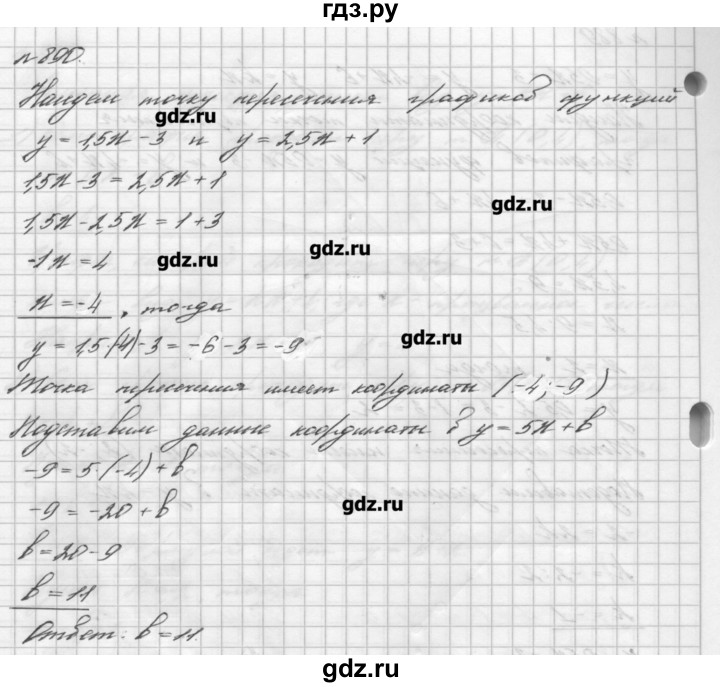 гдз.ру
№890.
Найдем точку пересечения графиков функций
gdz.ru
y = 1,5x - 3 и y = 2,5x + 1
1,5x - 3 = 2,5x + 1
gdz.ru
1,5x - 2,5x = 1 + 3
gdz.ru
-1x = 4
gdz.ru
x = -4, тогда
gdz.ru
y = 1,5·(-4) - 3 = -6 - 3 = -9
Точка пересечения имеет координаты (-4; -9)
Подставим данные координаты в y = 5x + b
-9 = 5·(-4) + b
gdz.ru
-9 = -20 + b
b = 20 - 9
b = 11
Ответ: b = 11.
gdz.ru